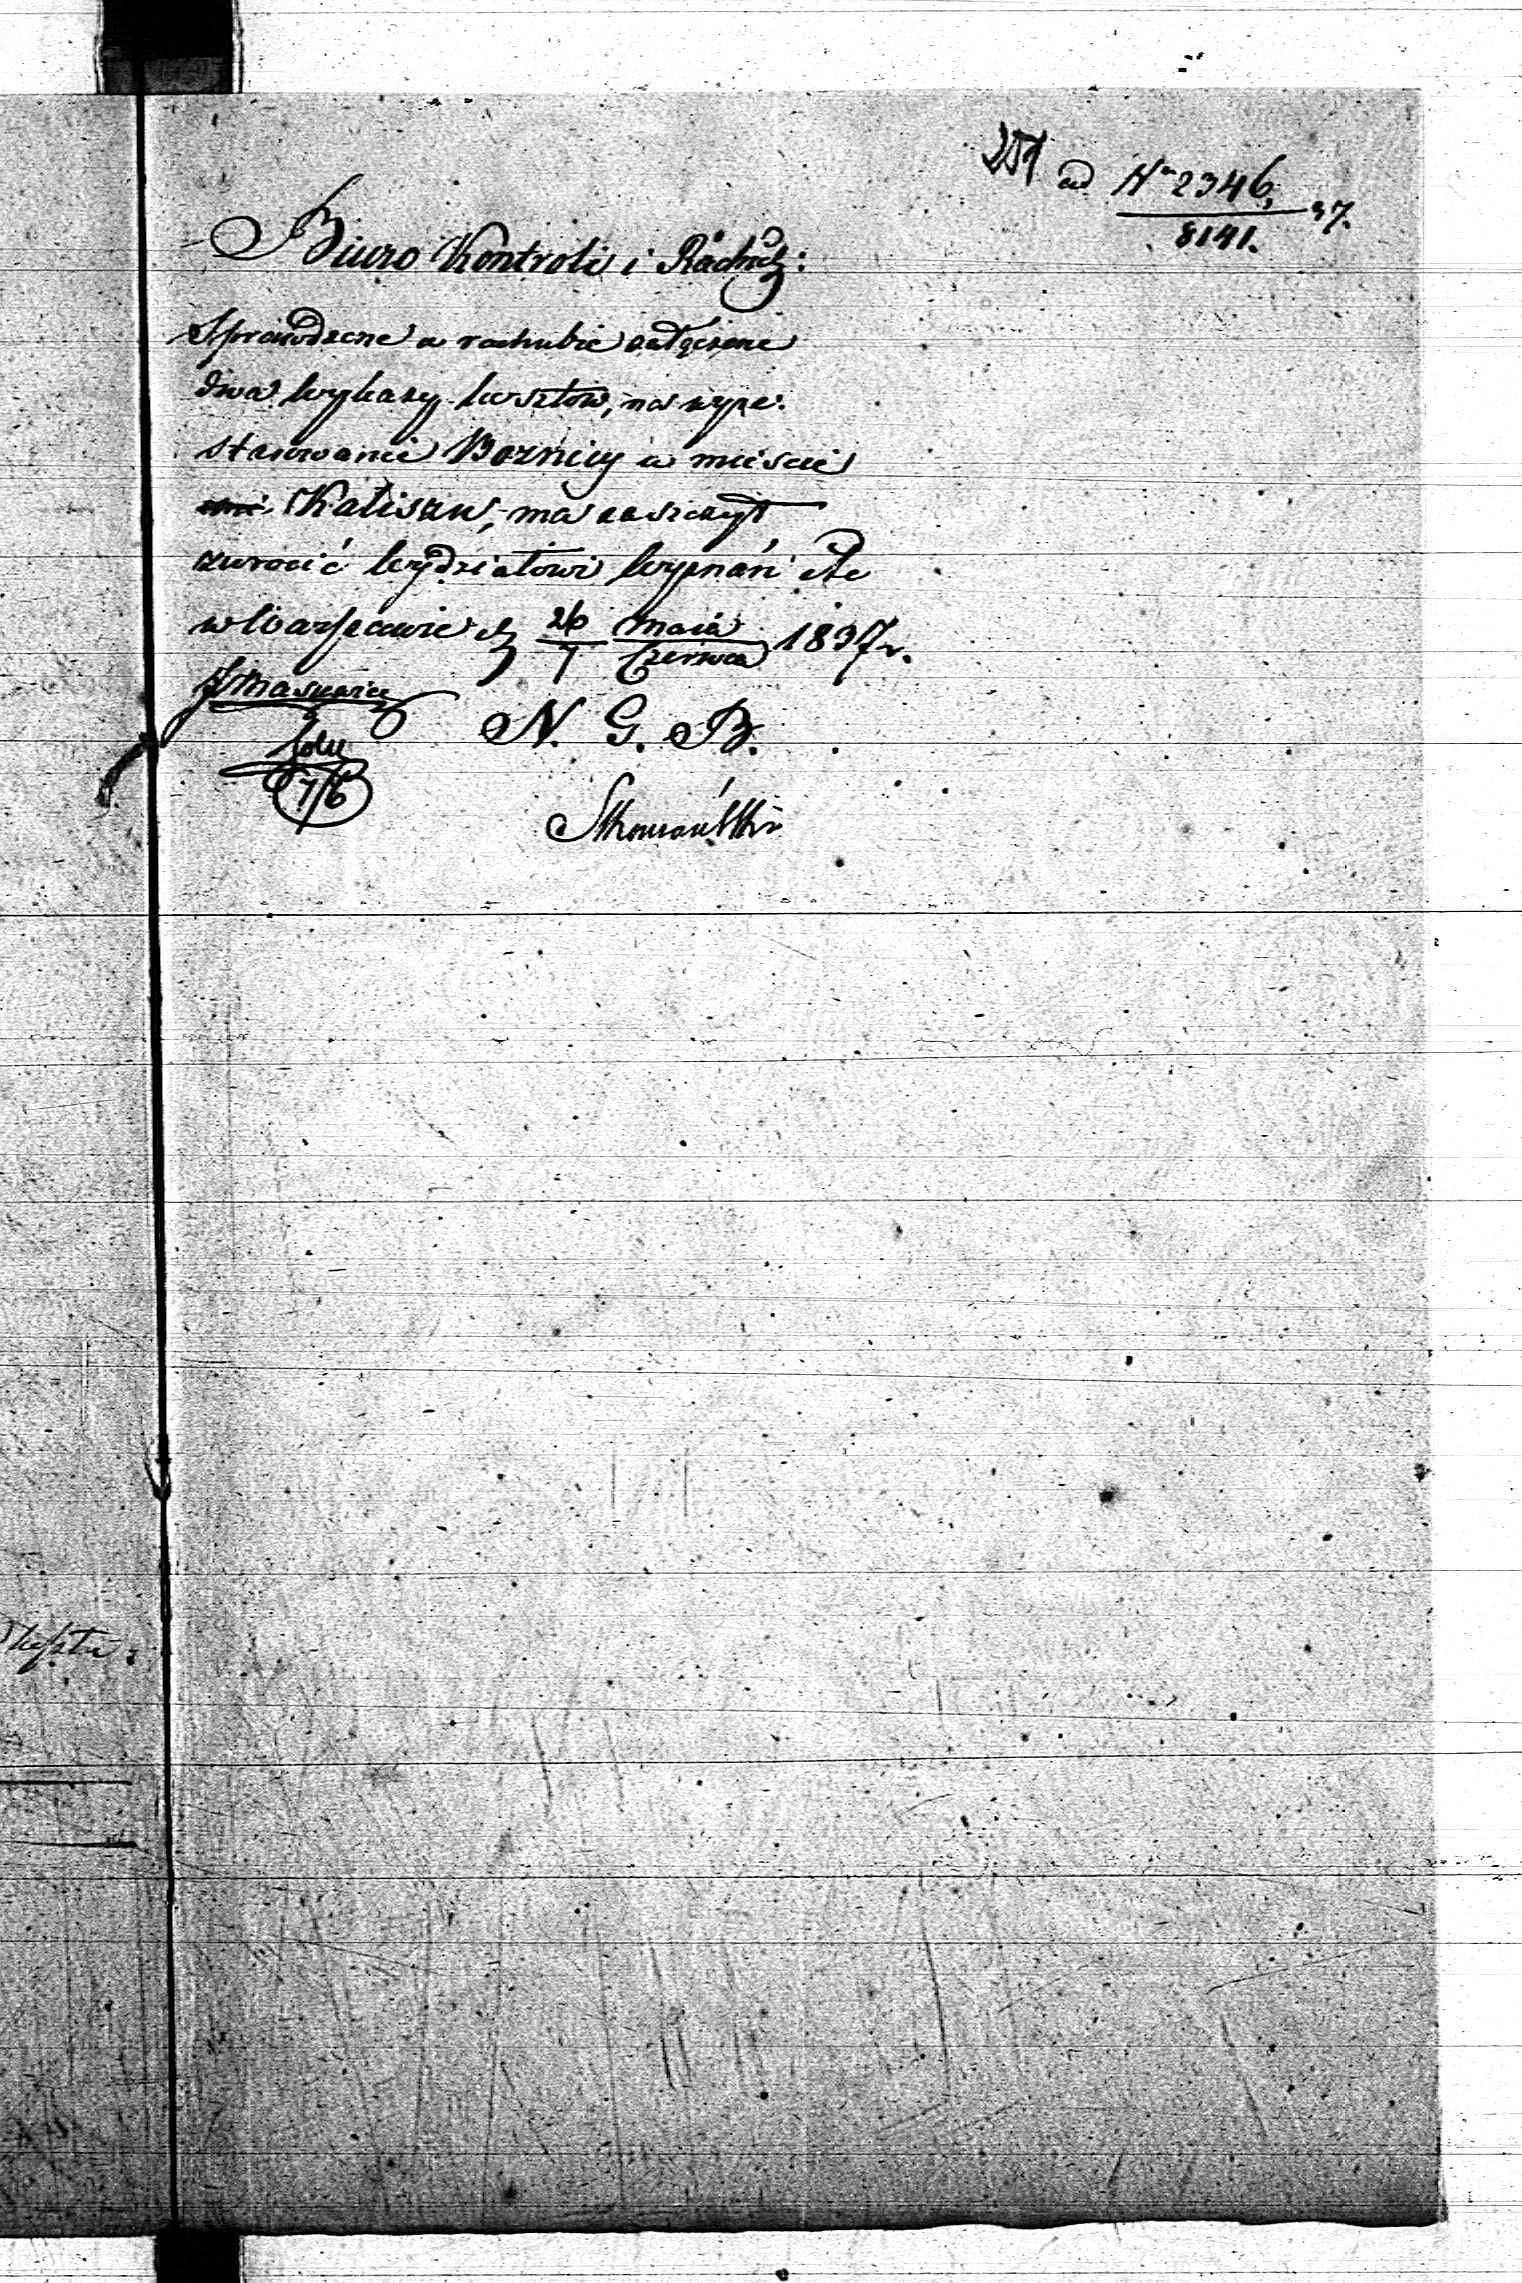 ad Nro 2346,
8141. 37.
Biuro Kontroli i Rachub:
Sprawdzone w rachubie załączone
dwa wykazy kosztów, na wyre-
staurowanie Boznicy w mieście
Kaliszu, ma zaszczyt
zwrócić Wydziałowi Wyznań etc
w Warszawie d 26 Maia / 7 Czerwca 1837 r.
N. G. B.
7/6